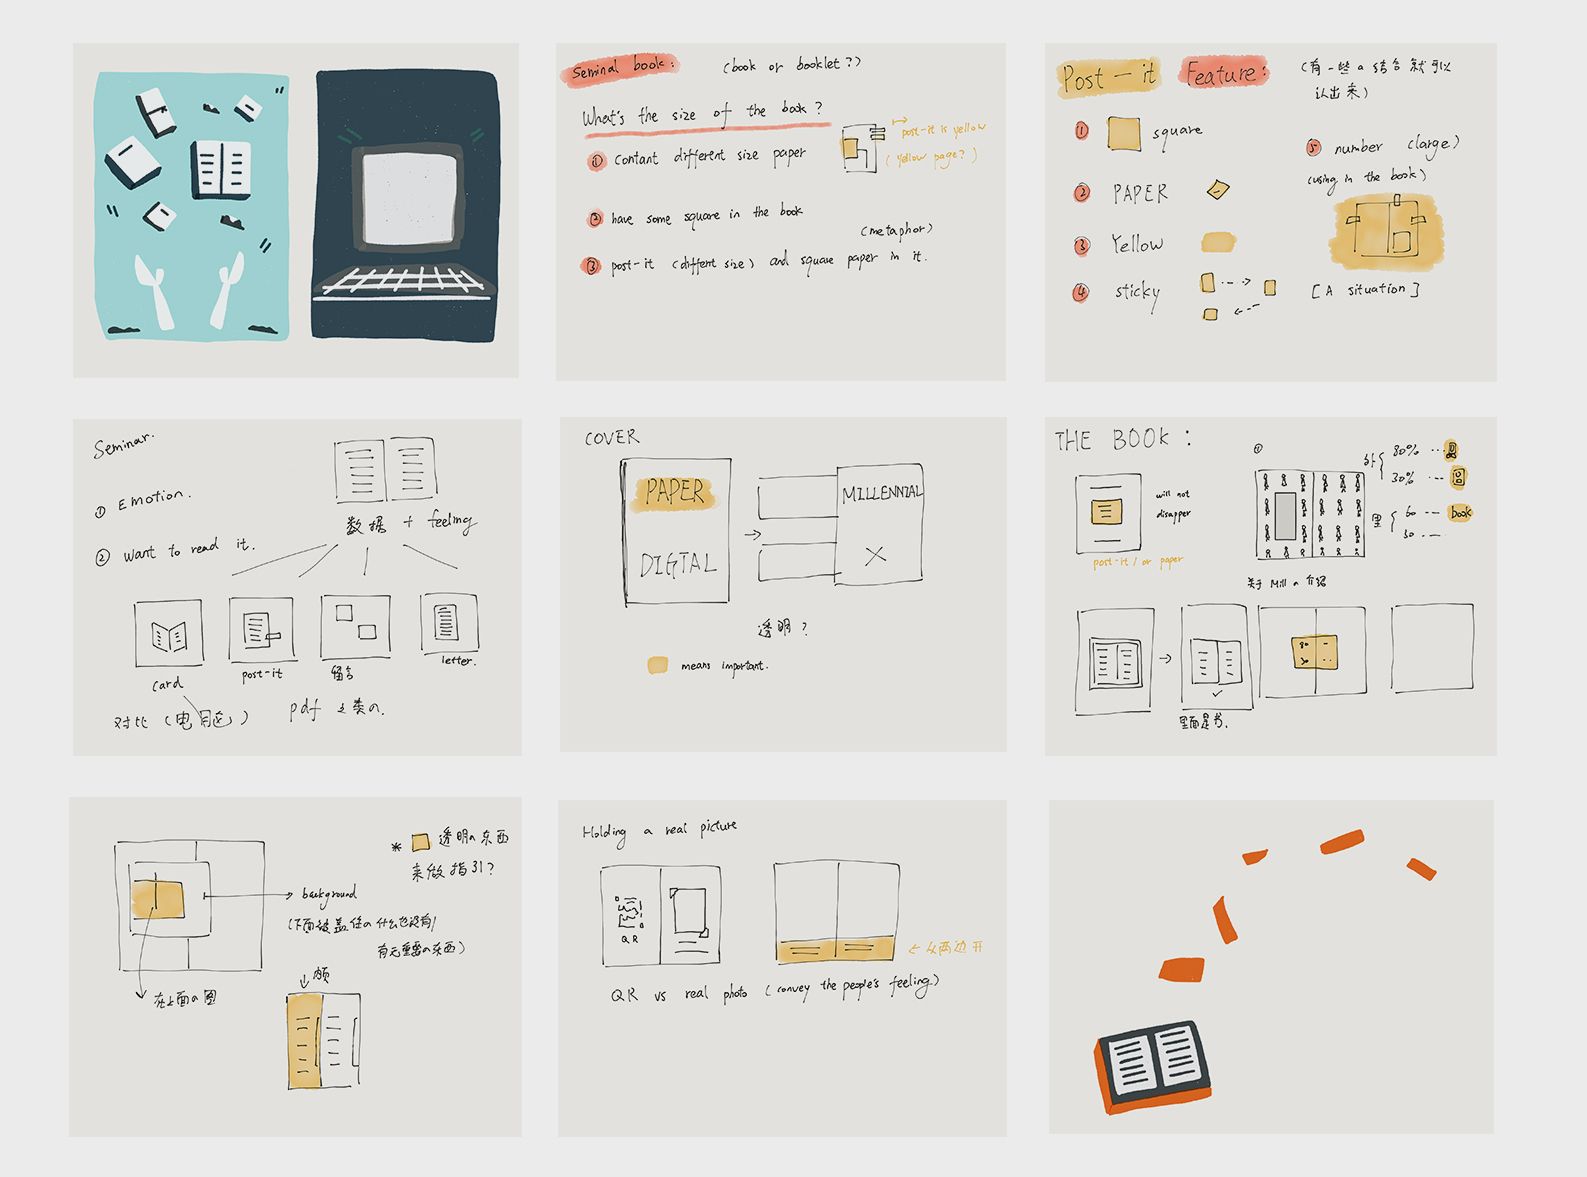 Seminal book:
(book or booklet?)
What's the size of the book?
① contant different size paper
post-it is yellow
(yellow page?)
② have some square in the book
(metaphor)
③ post-it (diffent size) and square paper in it.
Post-it Feature:
(有一些の结合就可以
认出来)
① square
② PAPER
③ Yellow
④ sticky
⑤ number (large)
(using in the book)
[A situation]
Seminar.
① Emotion.
② Want to read it.
数据 + feeling
card
post-it
留言
letter.
对比 (电脑)
pdf 之类の.
COVER
PAPER
DIGTAL
MILLENNIAL
X
透明?
means important.
THE BOOK:
will not
disapper
post-it / or paper
①
外
80% ...
30% ...
里
60 ... book
30 ...
关于 Mill の 介绍
80 -
30 ..
里面是书.
* 透明の东西
来做指引?
background
(下面被盖住の什么也没有/
有无重要の东西)
在上面の图
Holding a real picture
QR
← 从两边开
QR vs real photo (convey the people's feeling.)